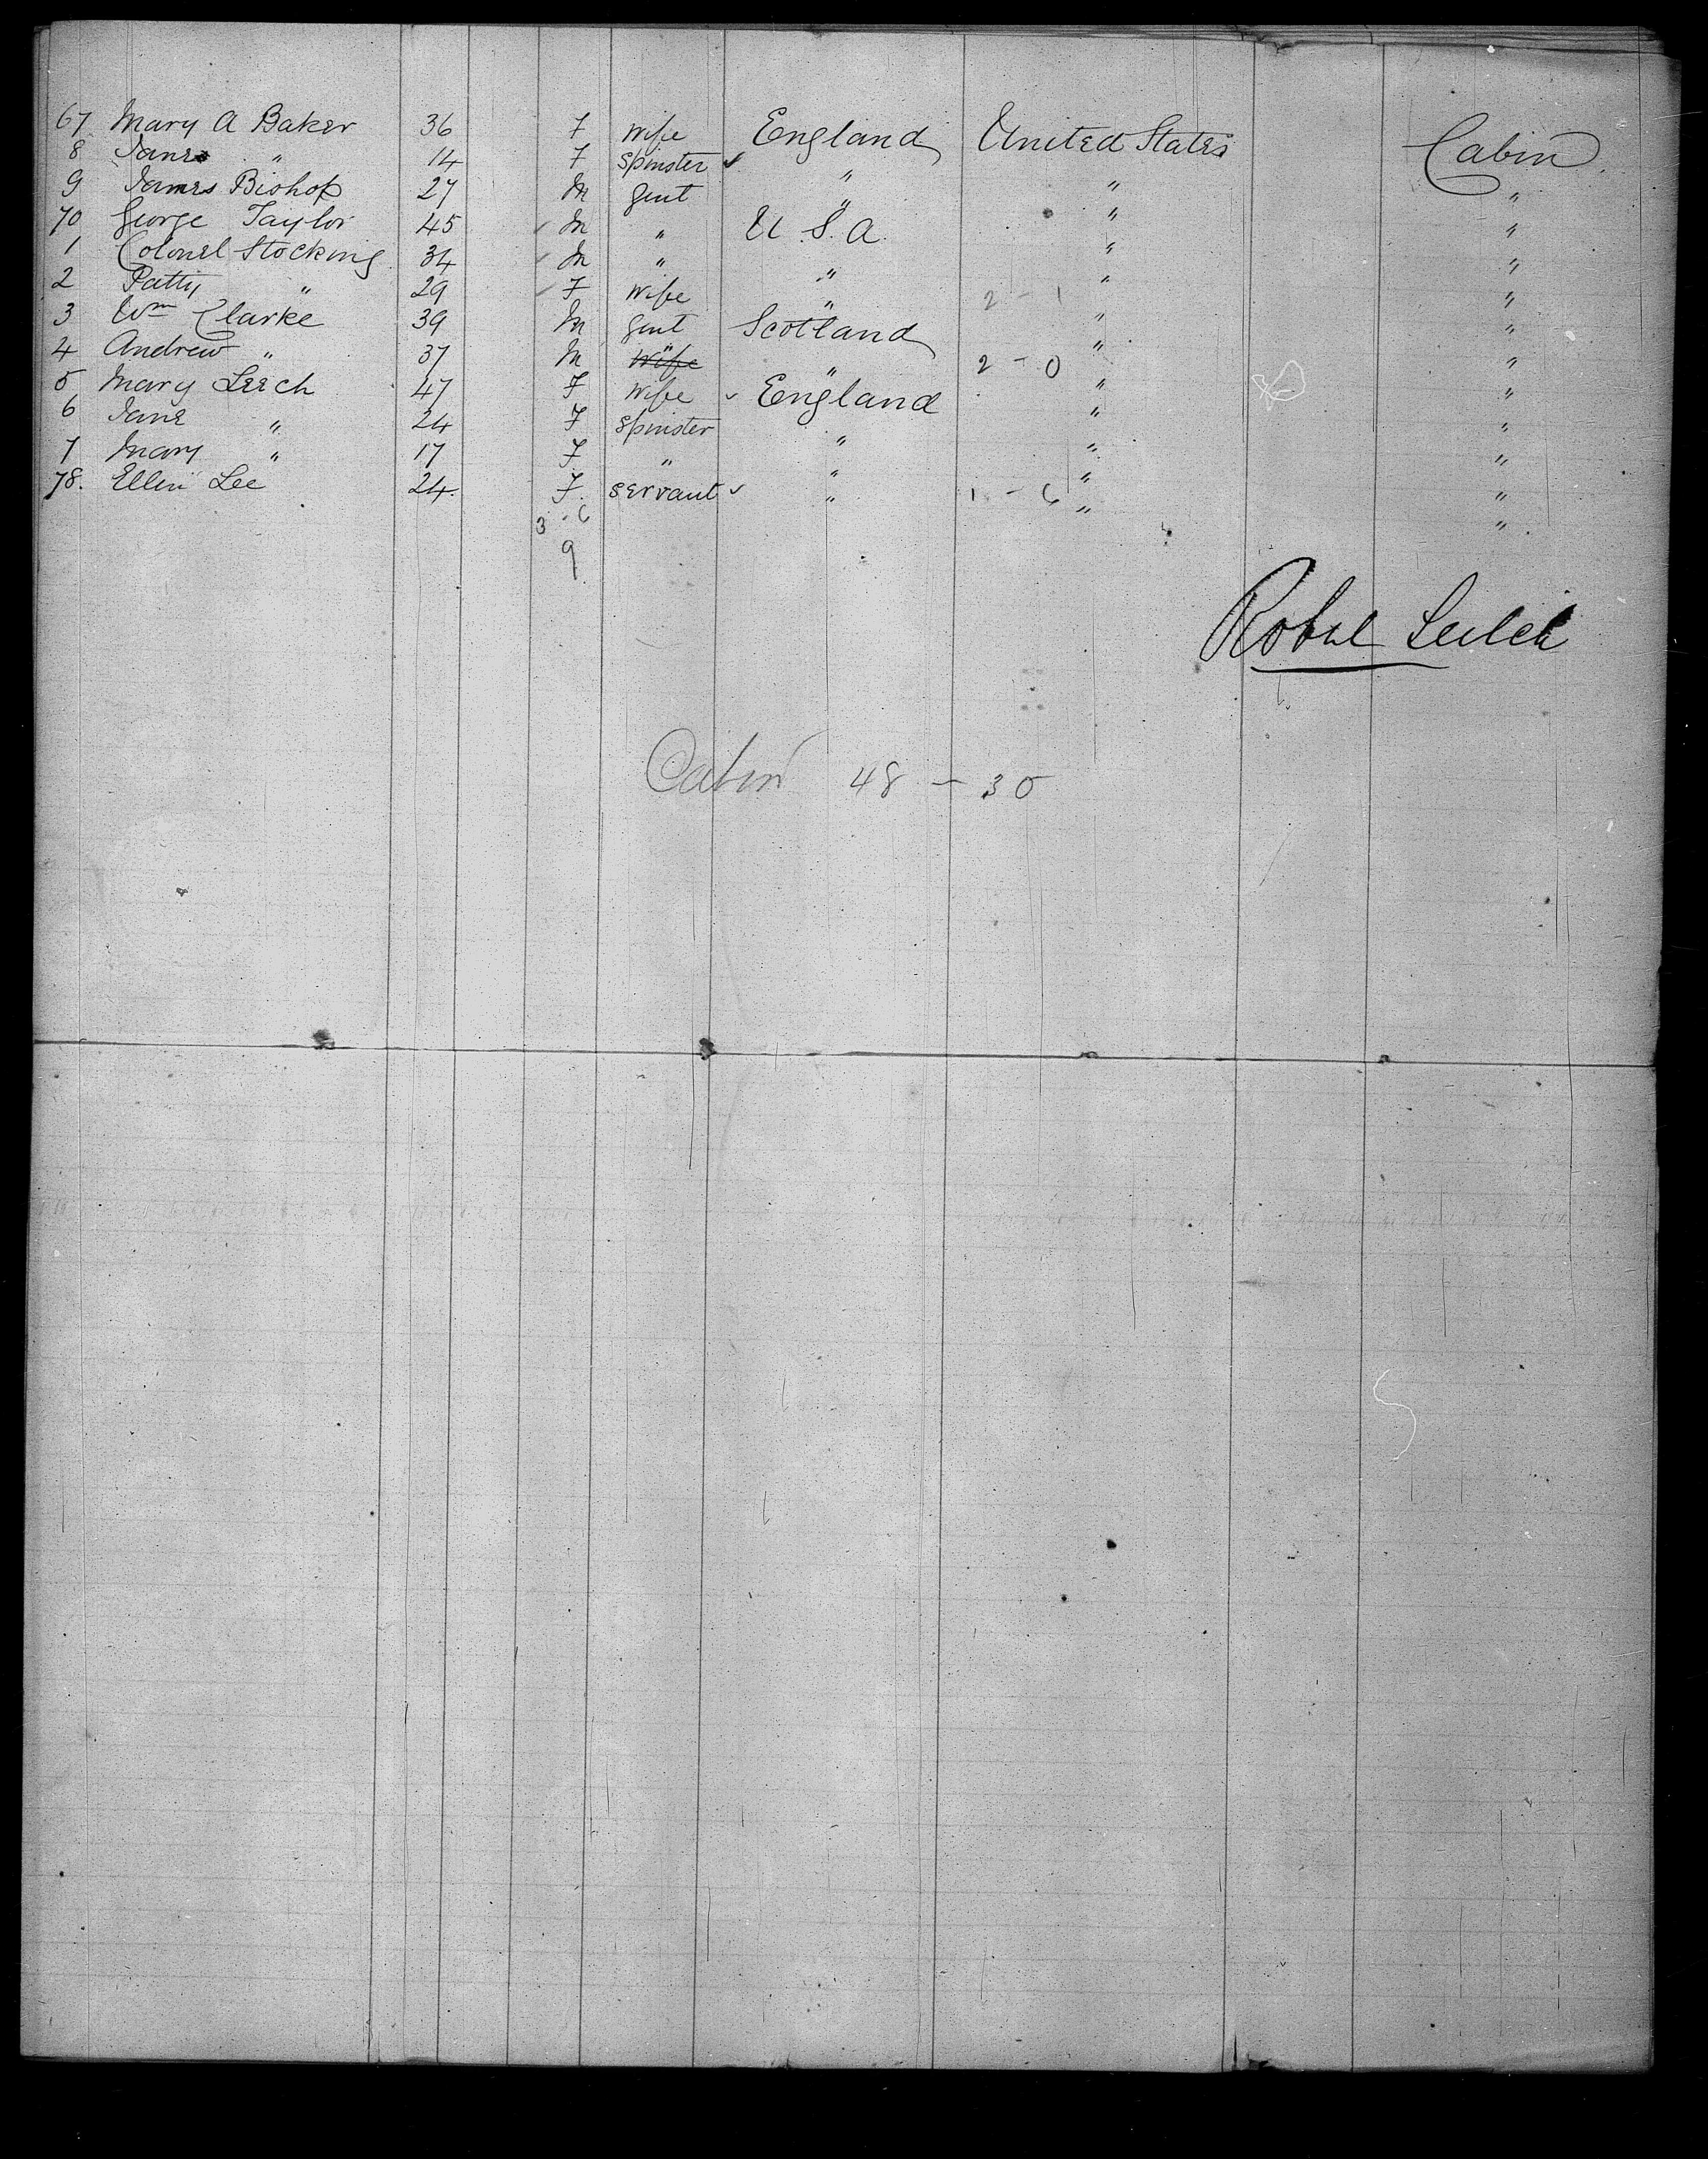 67 Mary A Baker 36 F wife England United States Cabin
8 Jane " 14 F spinster ✓ " " "
9 James Bishop 27 M gent " " "
70 George Taylor 45 ✓ M " U.S.A. " "
1 Colonel Stocking 34 ✓ M " " " "
2 Patty " 29 ✓ F wife " 2 - 1 " "
3 Wm Clarke 39 M gent Scotland " "
4 Andrew " 37 M " " 2 - 0 " "
5 Mary Leech 47 F wife ✓ England " "
6 Jane " 24 F spinster " " "
7 Mary " 17 F " " " "
78. Ellen Lee 24. F. servant ✓ " 1 - 6 " "
3 - 6
9
Cabin 48 - 30